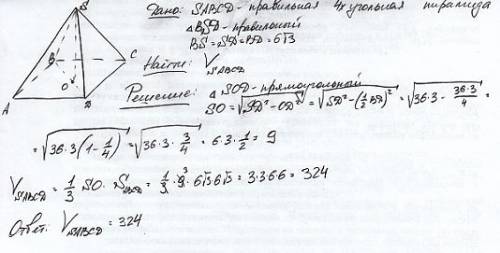 Дано: SABCD - правильная 4х угольная пирамида
△BSD - правильный
BS = SD = BD = 6√3
Найти: V_SABCD
Решение: △SOD - прямоугольный
SO = √(SD² - OD²) = √(SD² - (1/2 BD)²) = √(36·3 - 36·3/4) =
= √(36·3(1 - 1/4)) = √(36·3·3/4) = 6·3·1/2 = 9
V_SABCD = 1/3 SO · S_ABCD = 1/3 · 9 · 6√3 6√3 = 3·366 = 324
Ответ: V_SABCD = 324.
S
B
C
O
A
D